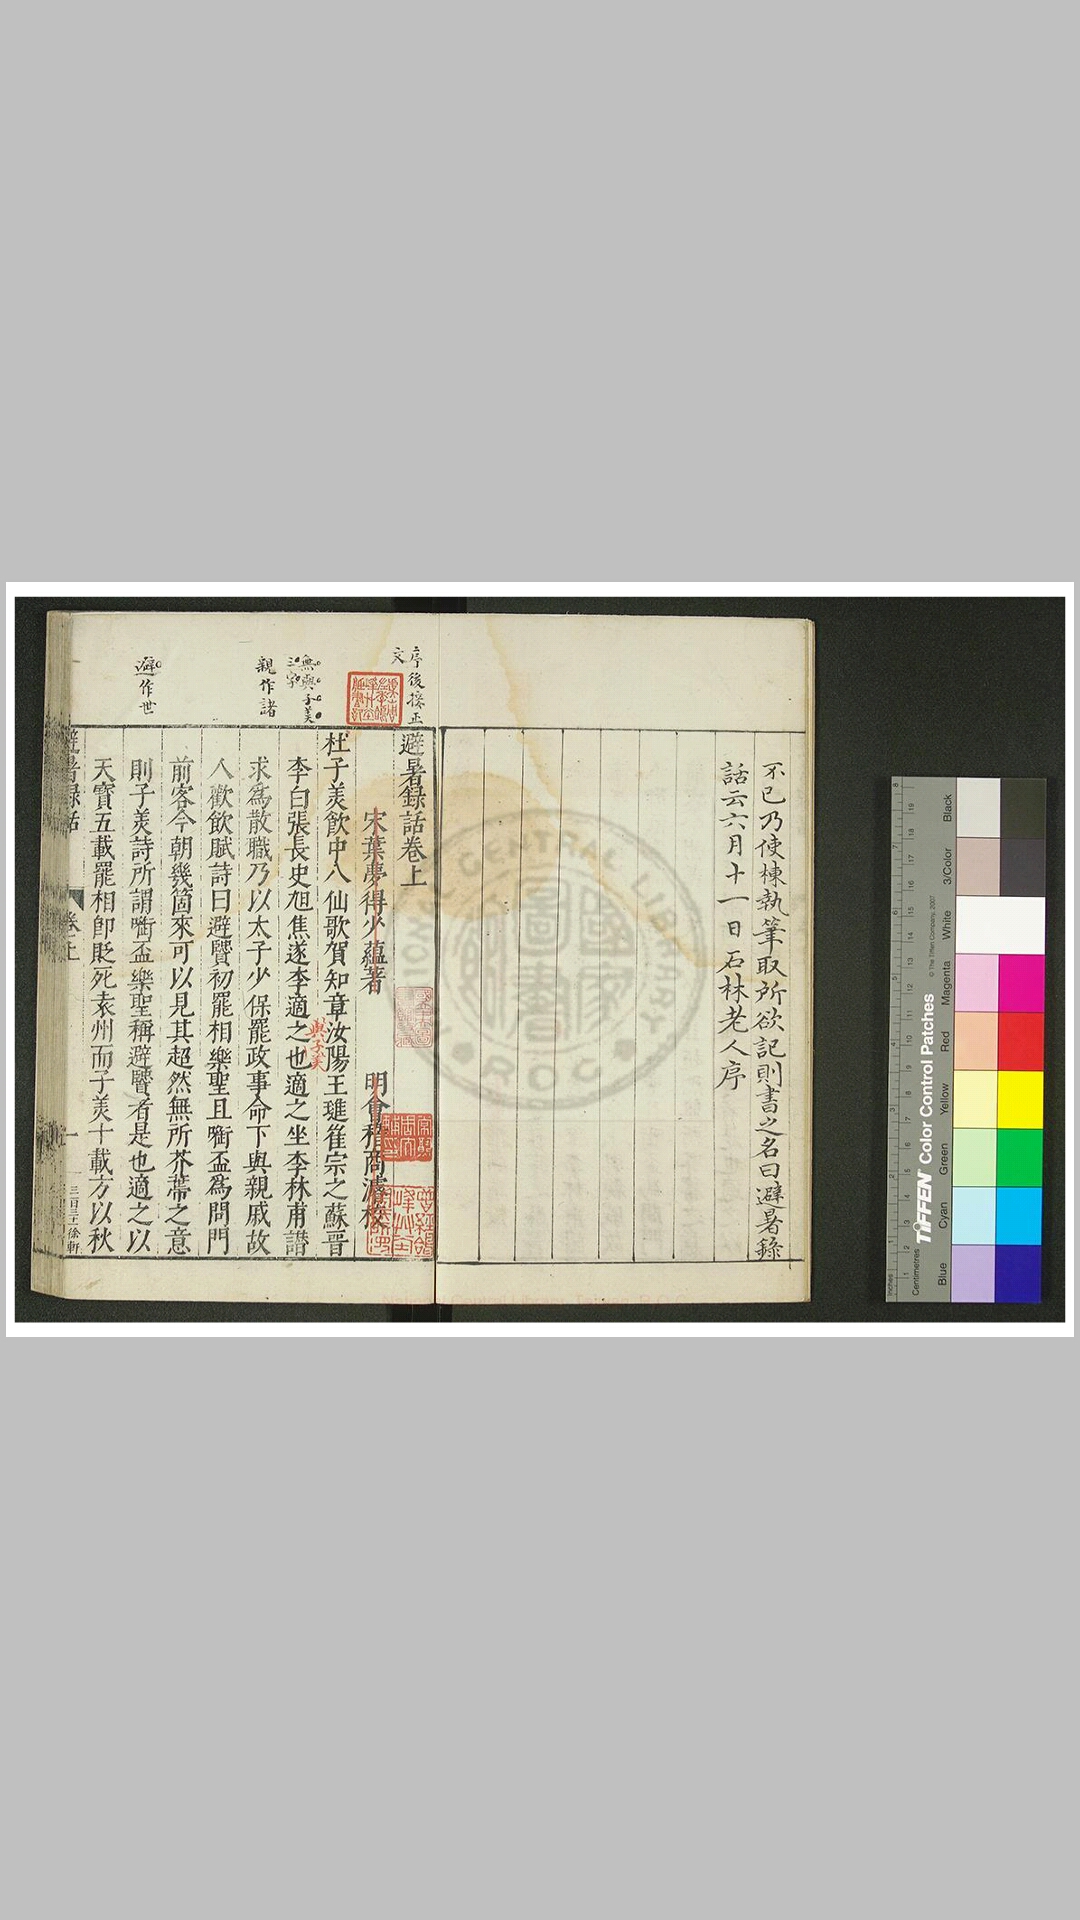 不已乃使棟執筆取所欲記則書之名曰避暑錄
話云六月十一日石林老人序
序後接正
文
避暑録話卷上
宋葉夢得少蘊著
明會稽商濬校
無與子美
三字
親作諸
避作世
杜子美飲中八仙歌賀知章汝陽王璡崔宗之蘇晉
李白張長史旭焦遂李適之也適之坐李林甫譖
與子美
求爲散職乃以太子少保罷政事命下與親戚故
人歡飲賦詩曰避賢初罷相樂聖且銜盃爲問門
前客今朝幾箇來可以見其超然無所芥蔕之意
則子美詩所謂銜盃樂聖稱避賢者是也適之以
天寶五載罷相卽貶死袁州而子美十載方以秋
避暑録話
卷之上
一
Color Control Patches
TIFFEN
© The Tiffen Company, 2007
Centimetres
Inches
Blue
Cyan
Green
Yellow
Red
Magenta
White
3/Color
Black